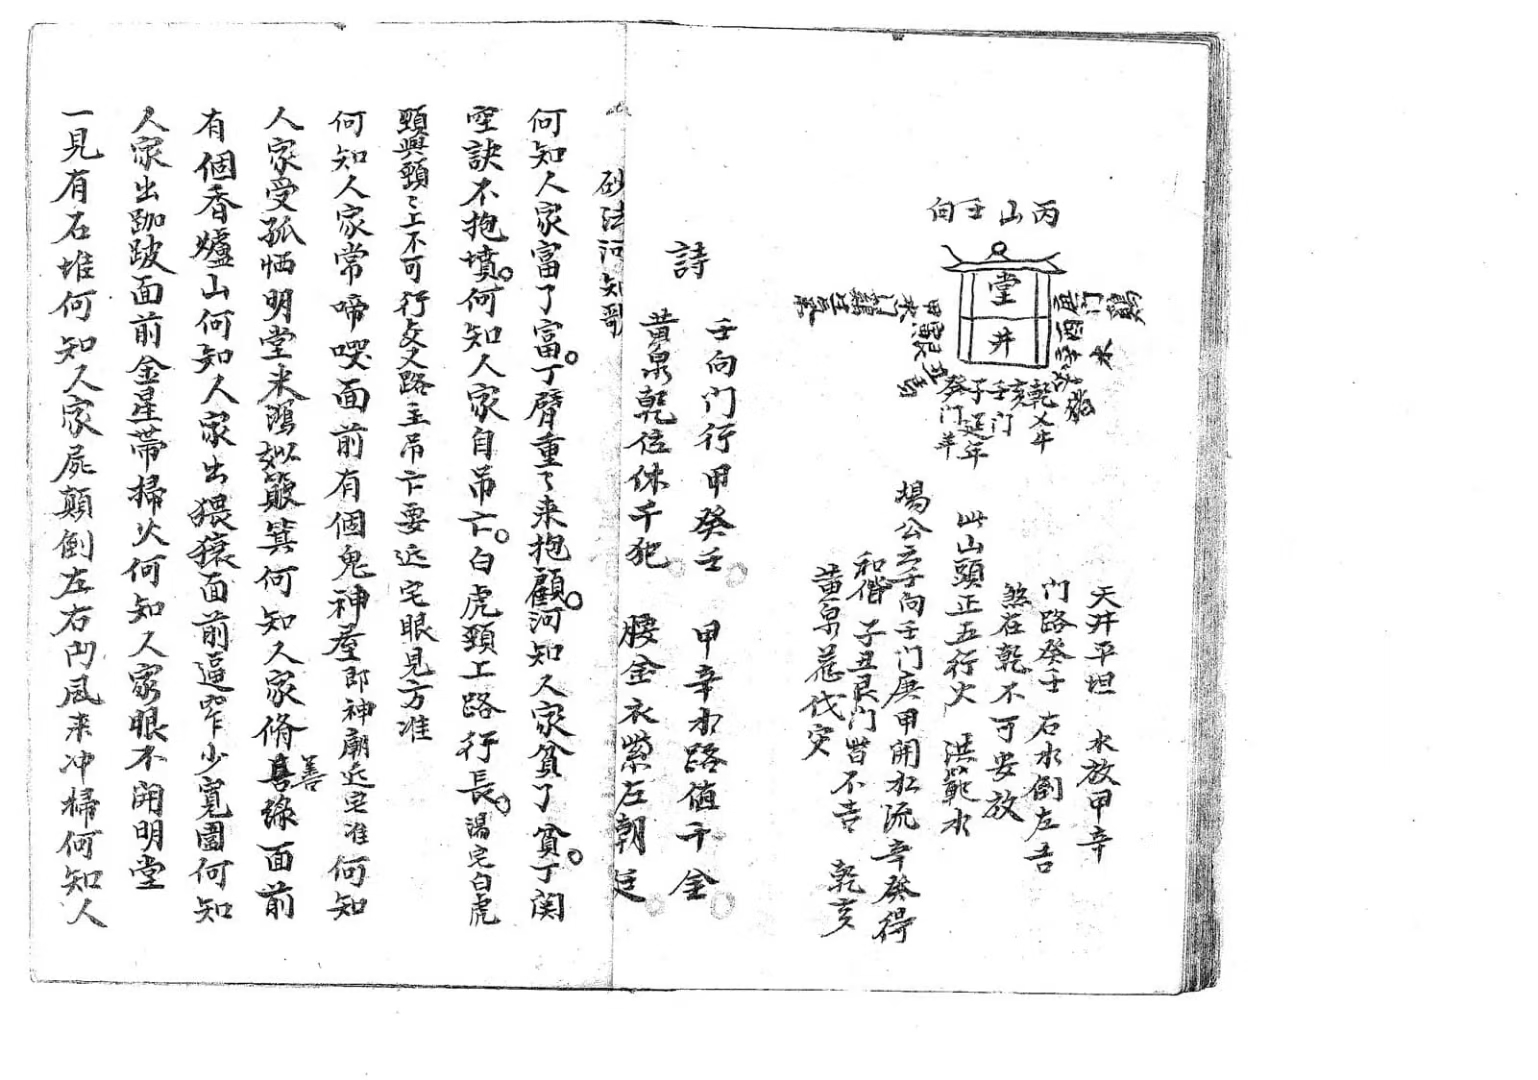 丙山壬向
堂
井
水
乾乂牛
亥
壬门
子延年
癸门羊
天井平坦 水放甲辛
门路癸壬 右水倒左吉
煞在乾不可安放
此山頭正五行火 洪範水
楊公云子向壬门庚甲開松流辛癸得
和偕 子丑艮门皆不吉 乾亥
黄泉莅伐灾
詩
壬向门行甲癸壬 甲辛水路值千金
黄泉乾位休千犯 腰金衣紫左朝廷
砂法河知歌
何知人家富了富丁臂重〻来抱顧河知人家貧了貧丁関
空訣不抱墳何知人家自吊亡白虎頸上路行長陽宅白虎
頸與頸〻上不可行交叉路主吊亡要近宅眼見方准
何知人家常啼哭面前有個鬼神屋郎神廟近宅准何知
人家受孤恓明堂米鴻如簸箕何知人家脩善緣面前
有個香爐山何知人家出猥獕面前逼窄少寬圖何知
人家出跏跛面前金星帶掃火何知人家眼不開明堂
一見有石堆何知人家屍顛倒左右凹風来冲掃何知人